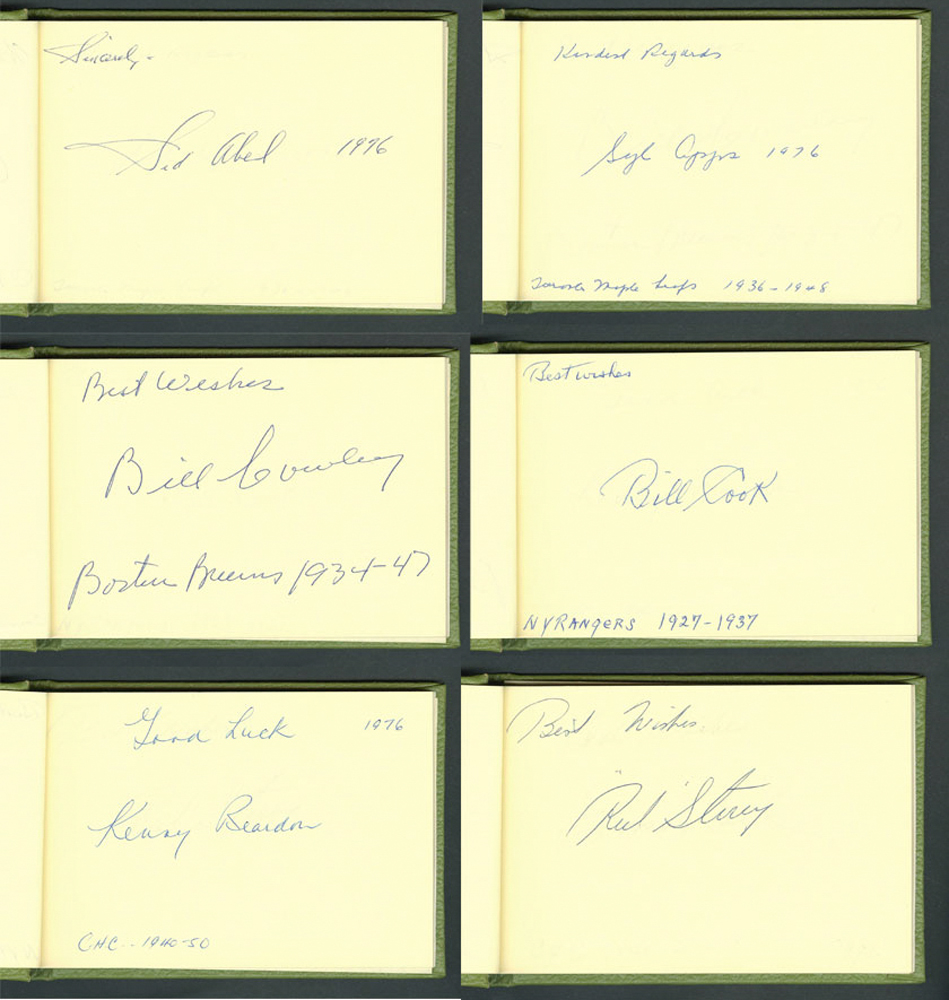 Sincerely -
Sid Abel 1976
Kindest Regards
Syl Apps 1976
Toronto Maple Leafs 1936-1948
Best Wishes
Bill Cowley
Boston Bruins 1934-47
Best wishes
Bill Cook
NYRANGERS 1927-1937
Good Luck 1976
Kenny Reardon
CHC - 1940-50
Best Wishes
"Red" Storey